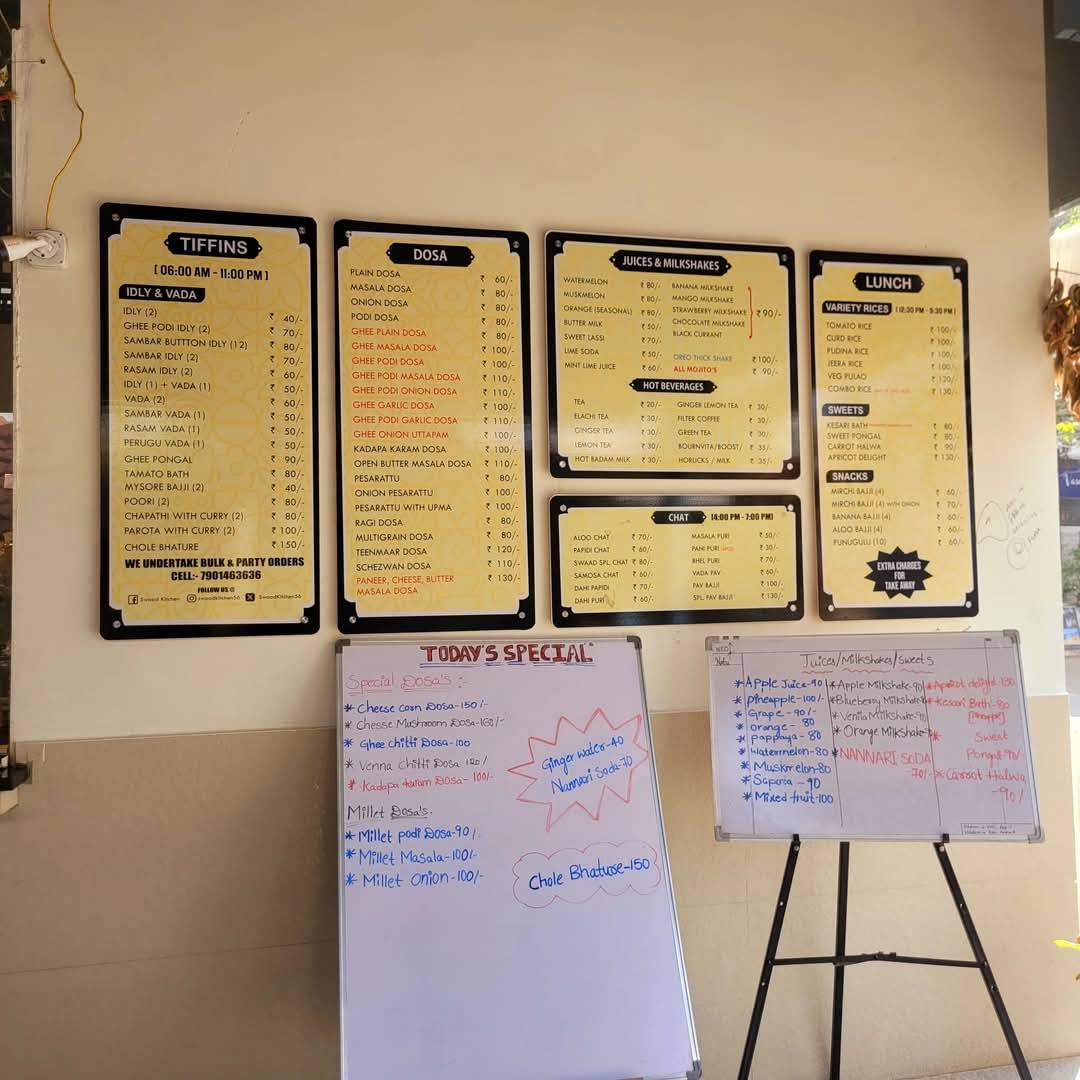 TIFFINS
[ 06:00 AM - 11:00 PM ]
IDLY & VADA
IDLY (2) ₹ 40/-
GHEE PODI IDLY (2) ₹ 70/-
SAMBAR BUTTTON IDLY (12) ₹ 80/-
SAMBAR IDLY (2) ₹ 70/-
RASAM IDLY (2) ₹ 60/-
IDLY (1) + VADA (1) ₹ 50/-
VADA (2) ₹ 60/-
SAMBAR VADA (1) ₹ 50/-
RASAM VADA (1) ₹ 50/-
PERUGU VADA (1) ₹ 50/-
GHEE PONGAL ₹ 90/-
TAMATO BATH ₹ 80/-
MYSORE BAJJI (2) ₹ 40/-
POORI (2) ₹ 80/-
CHAPATHI WITH CURRY (2) ₹ 80/-
PAROTA WITH CURRY (2) ₹ 100/-
CHOLE BHATURE ₹ 150/-
WE UNDERTAKE BULK & PARTY ORDERS
CELL:- 7901463636
FOLLOW US
Swaad Kitchen swaadkitchen56 SwaadKitchen56
DOSA
PLAIN DOSA ₹ 60/-
MASALA DOSA ₹ 80/-
ONION DOSA ₹ 80/-
PODI DOSA ₹ 80/-
GHEE PLAIN DOSA ₹ 80/-
GHEE MASALA DOSA ₹ 100/-
GHEE PODI DOSA ₹ 100/-
GHEE PODI MASALA DOSA ₹ 110/-
GHEE PODI ONION DOSA ₹ 110/-
GHEE GARLIC DOSA ₹ 100/-
GHEE PODI GARLIC DOSA ₹ 110/-
GHEE ONION UTTAPAM ₹ 100/-
KADAPA KARAM DOSA ₹ 100/-
OPEN BUTTER MASALA DOSA ₹ 110/-
PESARATTU ₹ 80/-
ONION PESARATTU ₹ 100/-
PESARATTU WITH UPMA ₹ 100/-
RAGI DOSA ₹ 80/-
MULTIGRAIN DOSA ₹ 80/-
TEENMAAR DOSA ₹ 120/-
SCHEZWAN DOSA ₹ 110/-
PANEER, CHEESE, BUTTER ₹ 130/-
MASALA DOSA
JUICES & MILKSHAKES
WATERMELON ₹ 80/-
MUSKMELON ₹ 80/-
ORANGE (SEASONAL) ₹ 80/-
BUTTER MILK ₹ 50/-
SWEET LASSI ₹ 70/-
LIME SODA ₹ 50/-
MINT LIME JUICE ₹ 60/-
BANANA MILKSHAKE
MANGO MILKSHAKE
STRAWBERRY MILKSHAKE ₹ 90/-
CHOCOLATE MILKSHAKE
BLACK CURRANT
OREO THICK SHAKE ₹ 100/-
ALL MOJITO'S ₹ 90/-
HOT BEVERAGES
TEA ₹ 20/-
ELACHI TEA ₹ 30/-
GINGER TEA ₹ 30/-
LEMON TEA ₹ 30/-
HOT BADAM MILK ₹ 30/-
GINGER LEMON TEA ₹ 30/-
FILTER COFFEE ₹ 30/-
GREEN TEA ₹ 30/-
BOURNVITA/BOOST ₹ 35/-
HORLICKS / MILK ₹ 35/-
CHAT [4:00 PM - 7:00 PM]
ALOO CHAT ₹ 70/-
PAPIDI CHAT ₹ 60/-
SWAAD SPL. CHAT ₹ 80/-
SAMOSA CHAT ₹ 60/-
DAHI PAPIDI ₹ 70/-
DAHI PURI ₹ 60/-
MASALA PURI ₹ 50/-
PANI PURI ₹ 30/-
BHEL PURI ₹ 70/-
VADA PAV ₹ 60/-
PAV BAJJI ₹ 100/-
SPL. PAV BAJJI ₹ 130/-
LUNCH
VARIETY RICES [12:30 PM - 5:30 PM]
TOMATO RICE ₹ 100/-
CURD RICE ₹ 100/-
PUDINA RICE ₹ 100/-
JEERA RICE ₹ 100/-
VEG PULAO ₹ 120/-
COMBO RICE ₹ 130/-
SWEETS
KESARI BATH ₹ 80/-
SWEET PONGAL ₹ 80/-
CARROT HALWA ₹ 90/-
APRICOT DELIGHT ₹ 130/-
SNACKS
MIRCHI BAJJI (4) ₹ 60/-
MIRCHI BAJJI (4) WITH ONION ₹ 70/-
BANANA BAJJI (4) ₹ 60/-
ALOO BAJJI (4) ₹ 60/-
PUNUGULU (10) ₹ 60/-
EXTRA CHARGES
FOR
TAKE AWAY
TODAY'S SPECIAL
Special Dosa's :-
* Cheese corn Dosa-150/-
* Chesse Mushroom Dosa-160/-
* Ghee chitti Dosa-100
* Venna Chitti Dosa 120/
* Kadapa karam DOSA- 100/-
Millet Dosa's.
* Millet podi Dosa-90/-
* Millet Masala-100/-
* Millet Onion-100/-
Ginger water-40
Nannari Soda-70
Chole Bhatuse-150
Juices/Milkshakes/sweets
* Apple Juice-90
* pineapple-100/-
* Grape-90/-
* orange- 80
* pappaya-80
* watermelon-80
* Muskmelon-80
* Sapota -90
* Mixed fruit-100
* Apple Milkshake-90
* Blueberry Milkshake
* Venila Milkshake
* Orange Milkshake
* NANNARI SODA
-70/-
* Apricot delight-130
* Kesari Bath-80
[Pineapple]
* Sweet
Pongal-90/-
* Carrot Halwa
-90/